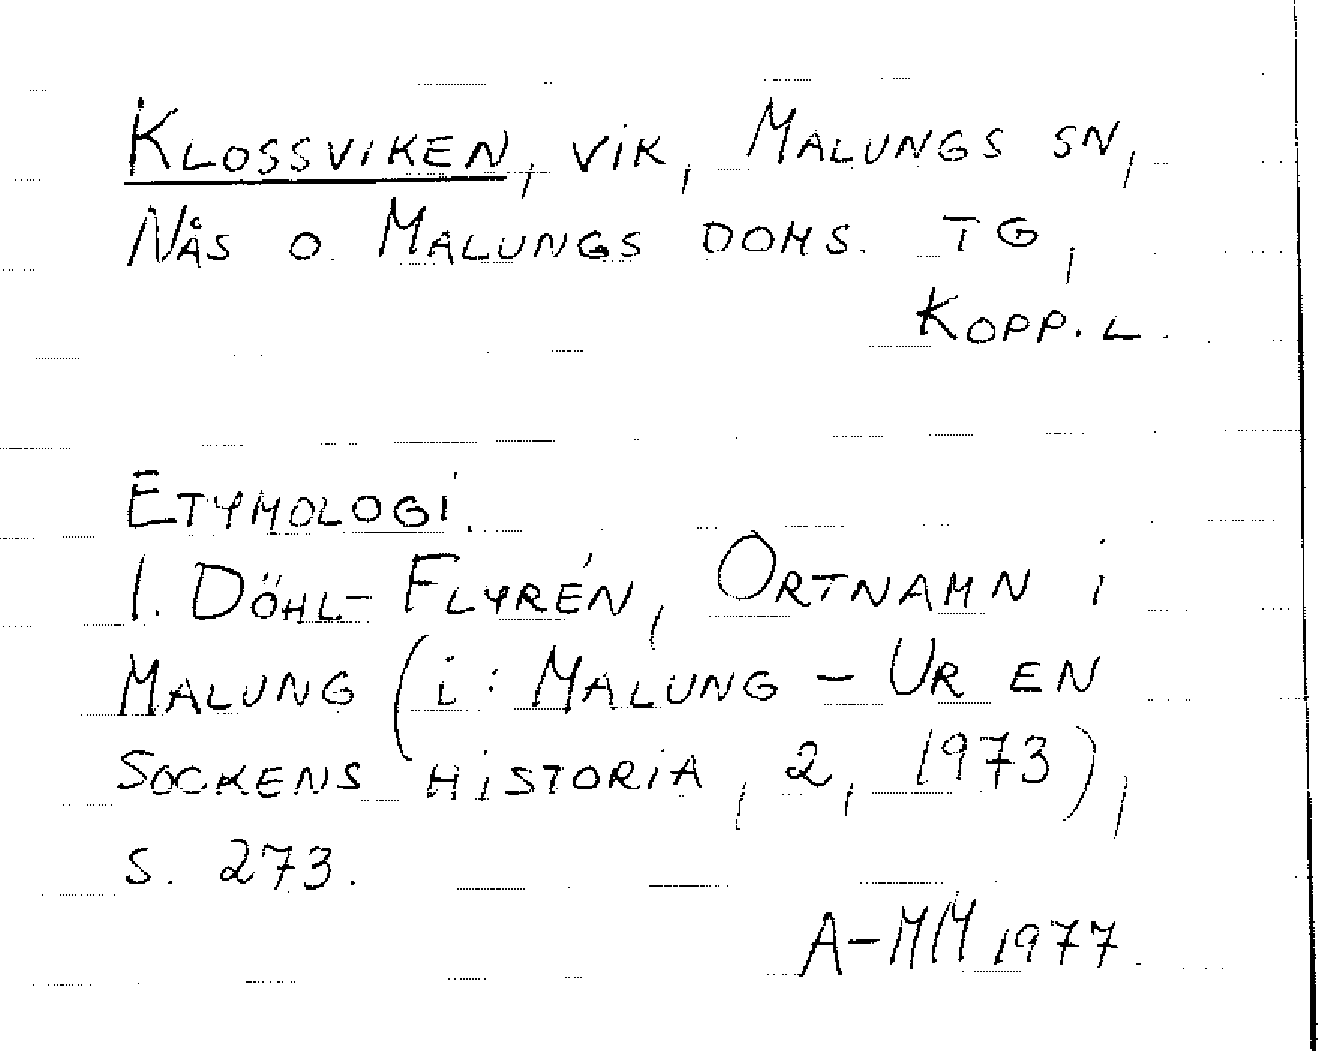 Klossviken, vik, Malungs sn,
Nås o. Malungs doms. tg,
Kopp. l.
Etymologi.
I. Döhl-Flyrén, Ortnamn i
Malung (i: Malung – Ur en
sockens historia, 2, 1973),
s. 273.
A-MM 1977.